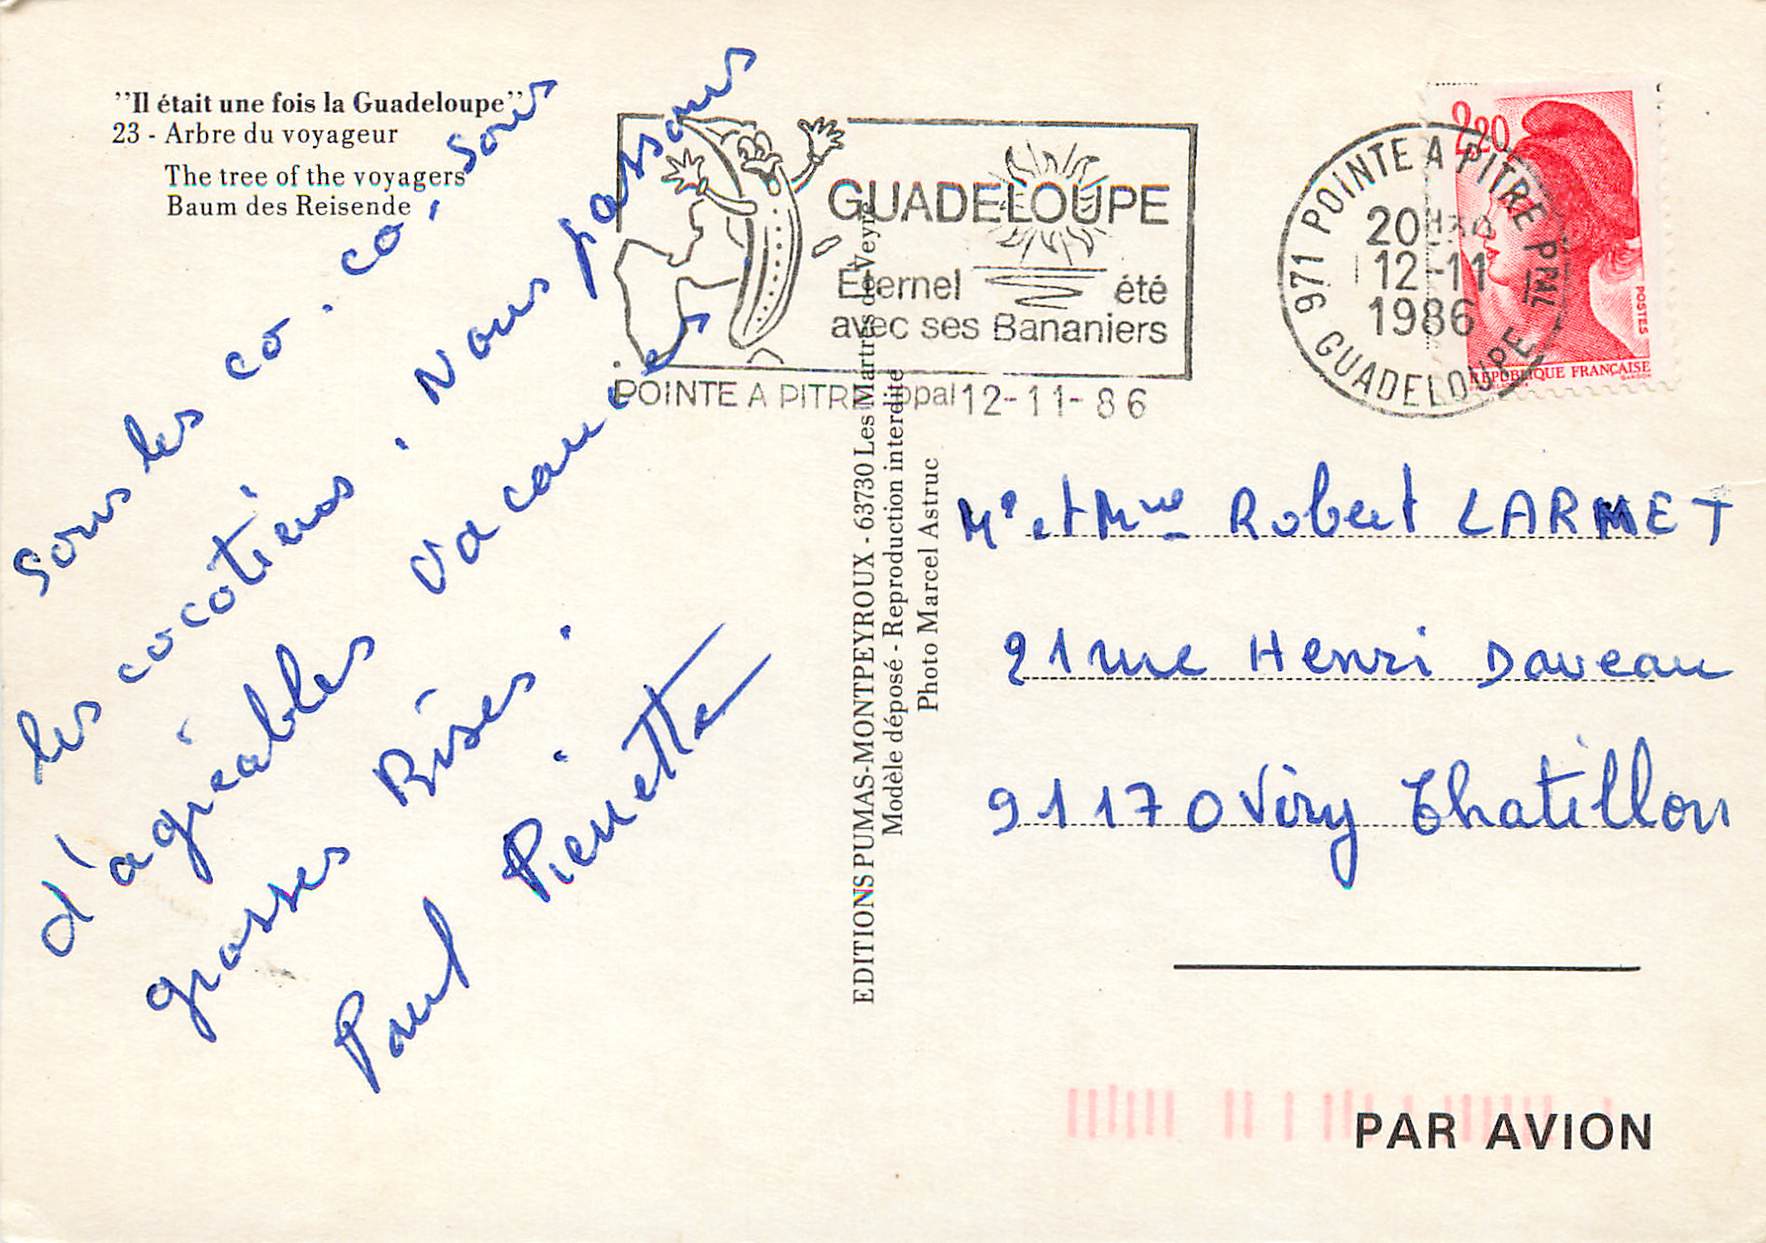 "Il était une fois la Guadeloupe"
23 - Arbre du voyageur
The tree of the voyagers
Baum des Reisende
sous les co. co, sous
les cocotiers. Nous passons
d'agréables vacances
grosses Bises.
Paul Pierrette
GUADELOUPE
Eternel été
avec ses Bananiers
POINTE A PITRE ppal 12-11-86
971 POINTE A PITRE PPAL
20H30
12-11
1986
GUADELOUPE
2,20
POSTES
REPUBLIQUE FRANÇAISE
EDITIONS PUMAS-MONTPEYROUX - 63730 Les Martres de Veyre
Modèle déposé - Reproduction interdite
Photo Marcel Astruc
Mr et Mme Robert LARMET
21 rue Henri Daveau
91170 Viry Chatillon
PAR AVION